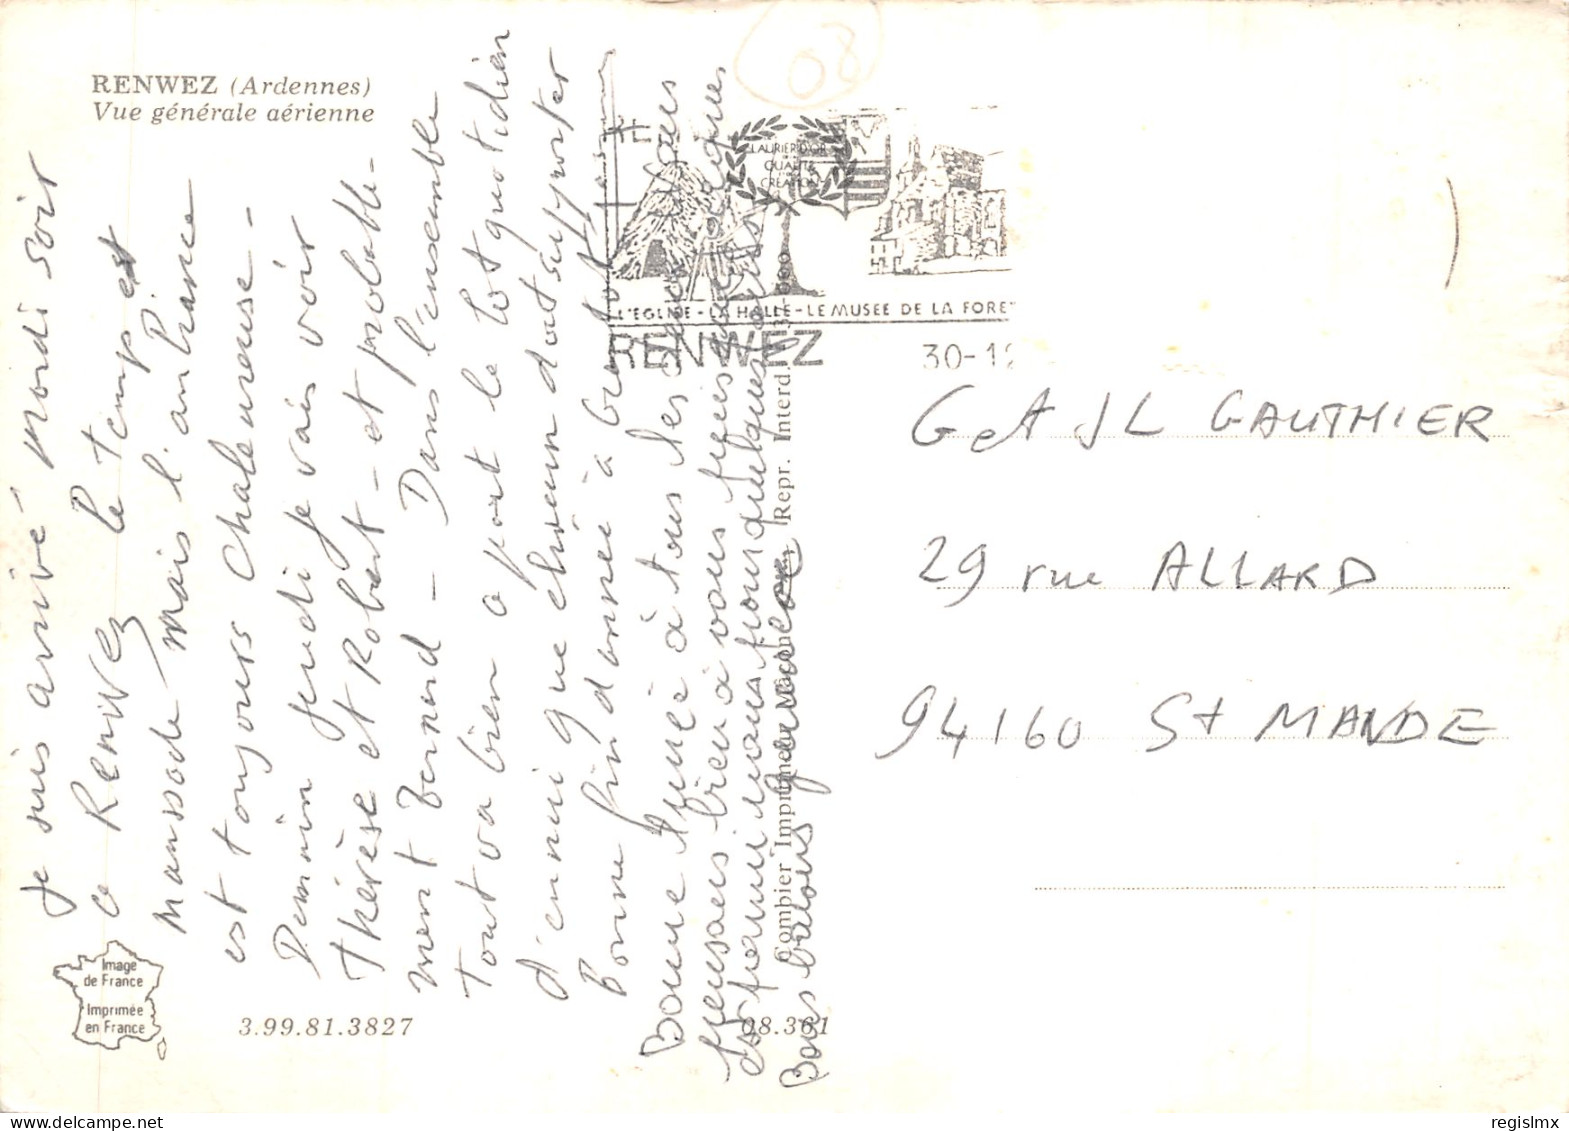 RENWEZ (Ardennes)
Vue générale aérienne
Je suis arrivé Mardi soir
a RENWEZ le temps est
maussade mais l'ambiance
est toujours chaleureuse -
Demain jeudi je vais voir
Thérèse et Robert - et probable-
ment Bernard - Dans l'ensemble
tout va bien a part le lot quotidien
d'ennui que chacun doit supporter
Bonne fin d'année à bientôt
Bonne Année à tous les deux
pensons bien à vous
pour quelques
Bons baisers
08
LAURIER D'OR
QUALITE
CREATION
L'EGLISE - LA HALLE - LE MUSEE DE LA FORE
RENWEZ
30-12
G et JL GAUTHIER
29 rue ALLARD
94160 St MANDE
Combier Imprimeur Mâcon
Repr. Interd.
Image
de France
Imprimée
en France
3.99.81.3827
08.361
regislmx